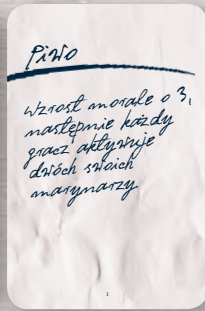 Piwo
wzrost morale o 3,
następnie każdy
gracz aktywuje
dwóch swoich
marynarzy
1